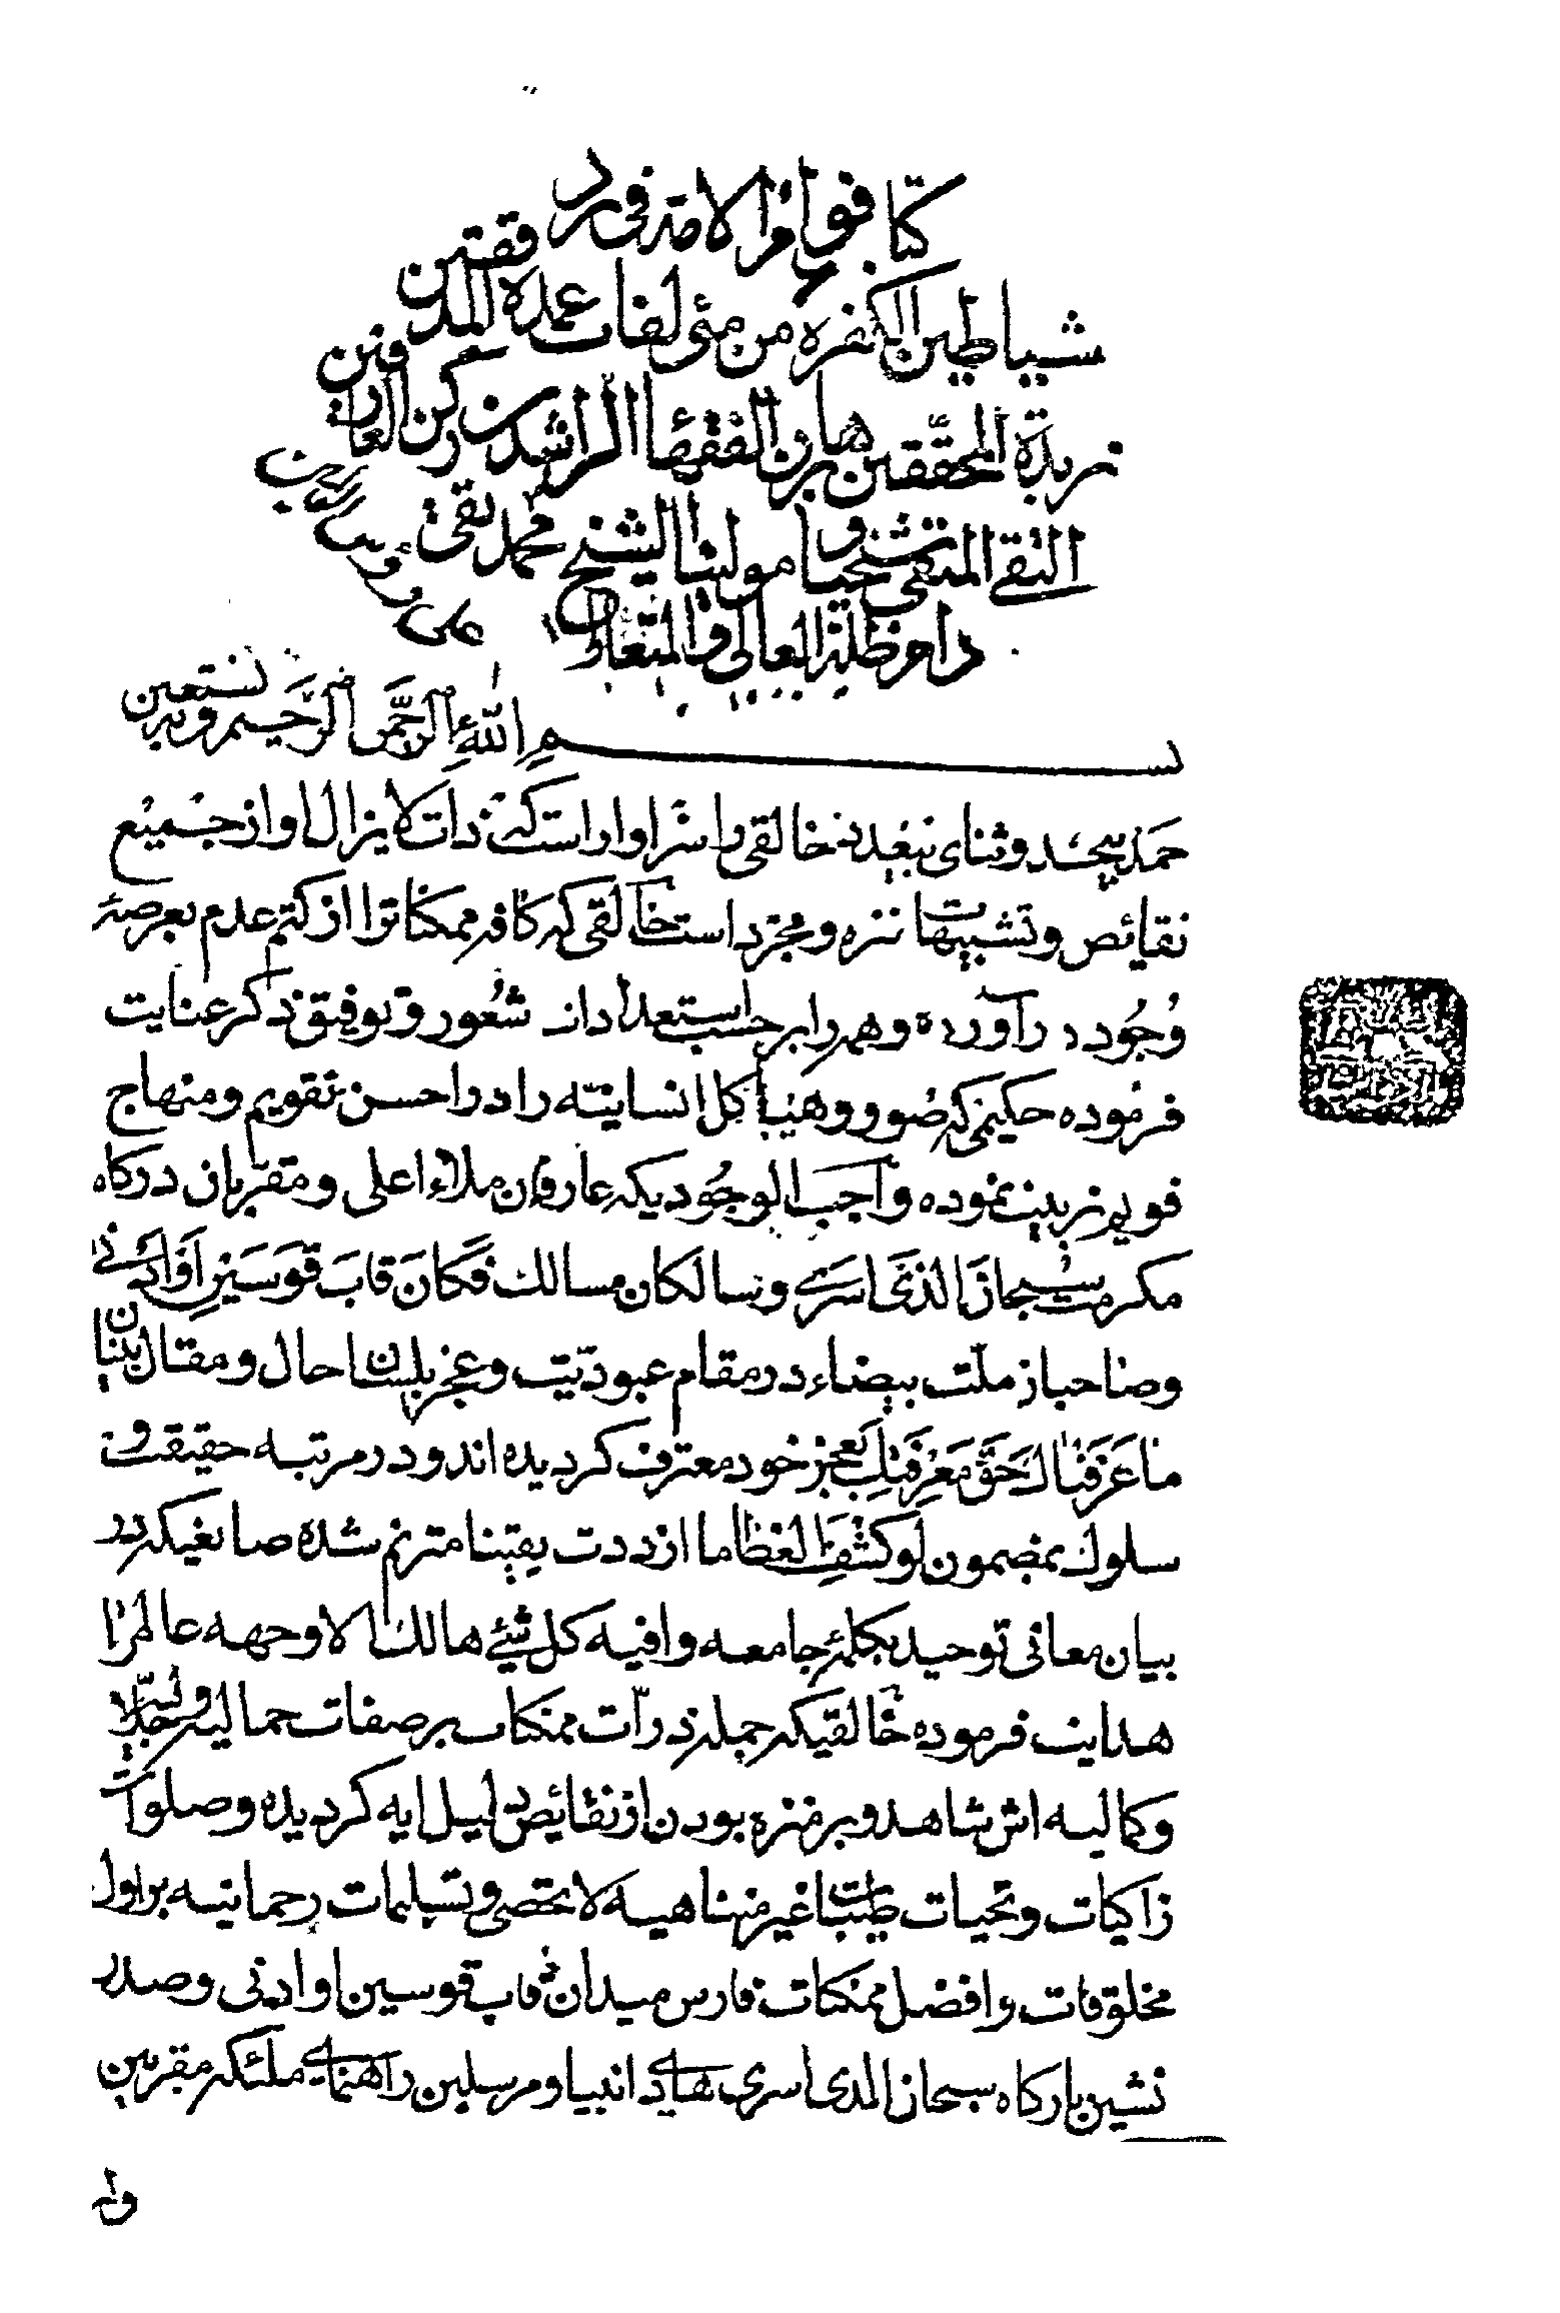 کتاب قوام الامة فی رد
شیاطین الکفره من مئولفات عمدة المدققین
زبدة المحققین هارن الفقهاا الراشدین رکن العارفین
التقی المتقی شیخنا و مولینا الشیخ محمد تقی
دام ظله العالی
بسم الله الرحمن الرحیم وبه نستعین
حمد بیحد وثنای بیعد خالقی را سزاوار است که ذات لا یزال او از جمیع
نقائص وتشبیهات منزه ومجرد است خالقی که کافه ممکناترا از کتم عدم بعرصه
وجود درآورده وهمه را بر حسب استعدادات شعور وتوفیق ذکر عنایت
فرموده حکیمی که صور وهیاکل انسانیته را در احسن تقویم ومنهاج
قویم تزیین نموده واجب الوجودیکه عارفان ملاء اعلی ومقربان درکاه
مکرمت سبحان الذی اسری وسالکان مسالک فکان قاب قوسین او ادنی
وصاحبان ملت بیضاء در مقام عبودیت وعجز بلسان حال ومقال بنان
ما عرفناک حق معرفتک بعجز خود معترف کردیده اند ودر مرتبه حقیقت و
سلوک بمضمون لو کشف الغطا ما ازددت یقینا مترنم شده صانعیکه در
بیان معانی توحید بکلمه جامعه وافیه کل شیئ هالک الا وجهه عالمرا
هدایت فرموده خالقیکه جمله ذرات ممکنات بر صفات جمالیه وجلالیه
وکمالیه اش شاهد وبر منزه بودن از نقائص دلیل ایه کردیده وصلوات
زاکیات وتحیات طیبات غیر متناهیه لا تحصی وتسلیمات رحمانیه بر اول
مخلوقات وافضل ممکنات فارس میدان قاب قوسین او ادنی وصدر
نشین بارکاه سبحان الذی اسری هادی انبیا ومرسلین راهنمای ملئکه مقربین